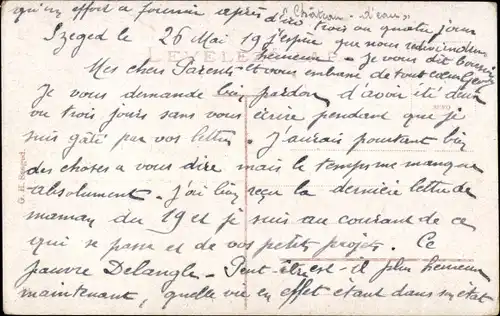 qu'un effort a fournir après
d'ici "Château d'eau"
trois ou quatre jours
Szeged le 26 Mai 19 j'espère que nous redeviendrons
LEVELE
heureux Je vous dit bonsoir
Mes chers Parents et vous embrasse de tout cœur
Je vous demande bien pardon d'avoir été deux
ou trois jours sans vous écrire pendant que je
suis gâté par vos lettres. J'aurais pourtant bien
des choses a vous dire mais le temps me manque
absolument - J'ai bien reçu la dernière lettre de
maman du 19 et je suis au courant de ce
qui se passe et de vos petits projets. Ce
pauvre Delangle - Peut-être est-il plus heureux
maintenant, quelle vie en effet étant dans son état
G. H. Szeged.